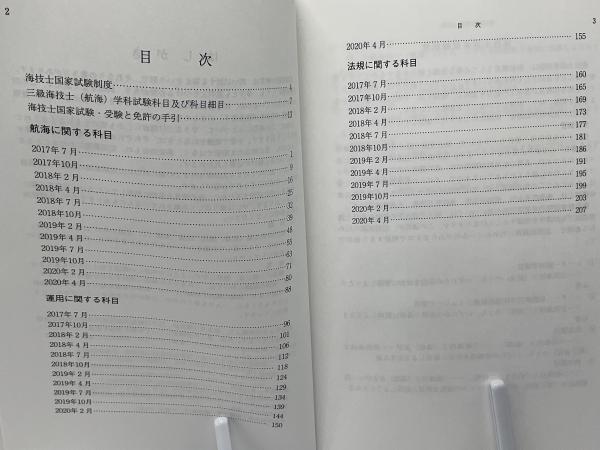 2
目 次
海技士国家試験制度 4
三級海技士（航海）学科試験科目及び科目細目 7
海技士国家試験・受験と免許の手引 17
航海に関する科目
2017年 7 月 1
2017年10月 9
2018年 2 月 16
2018年 4 月 25
2018年 7 月 32
2018年10月 39
2019年 2 月 48
2019年 4 月 55
2019年 7 月 63
2019年10月 71
2020年 2 月 80
2020年 4 月 88
運用に関する科目
2017年 7 月 96
2017年10月 101
2018年 2 月 106
2018年 4 月 112
2018年 7 月 118
2018年10月 124
2019年 2 月 129
2019年 4 月 134
2019年 7 月 139
2019年10月 144
2020年 2 月 150
目 次 3
2020年 4 月 155
法規に関する科目
2017年 7 月 160
2017年10月 165
2018年 2 月 169
2018年 4 月 173
2018年 7 月 177
2018年10月 181
2019年 2 月 186
2019年 4 月 191
2019年 7 月 195
2019年10月 199
2020年 2 月 203
2020年 4 月 207